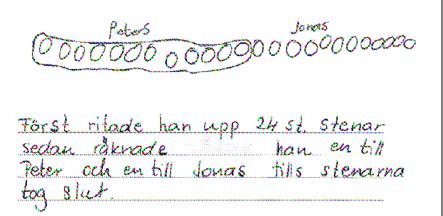 Peters Jonas
Först ritade han upp 24 st. stenar
sedan räknade han en till
Peter och en till Jonas tills stenarna
tog slut.